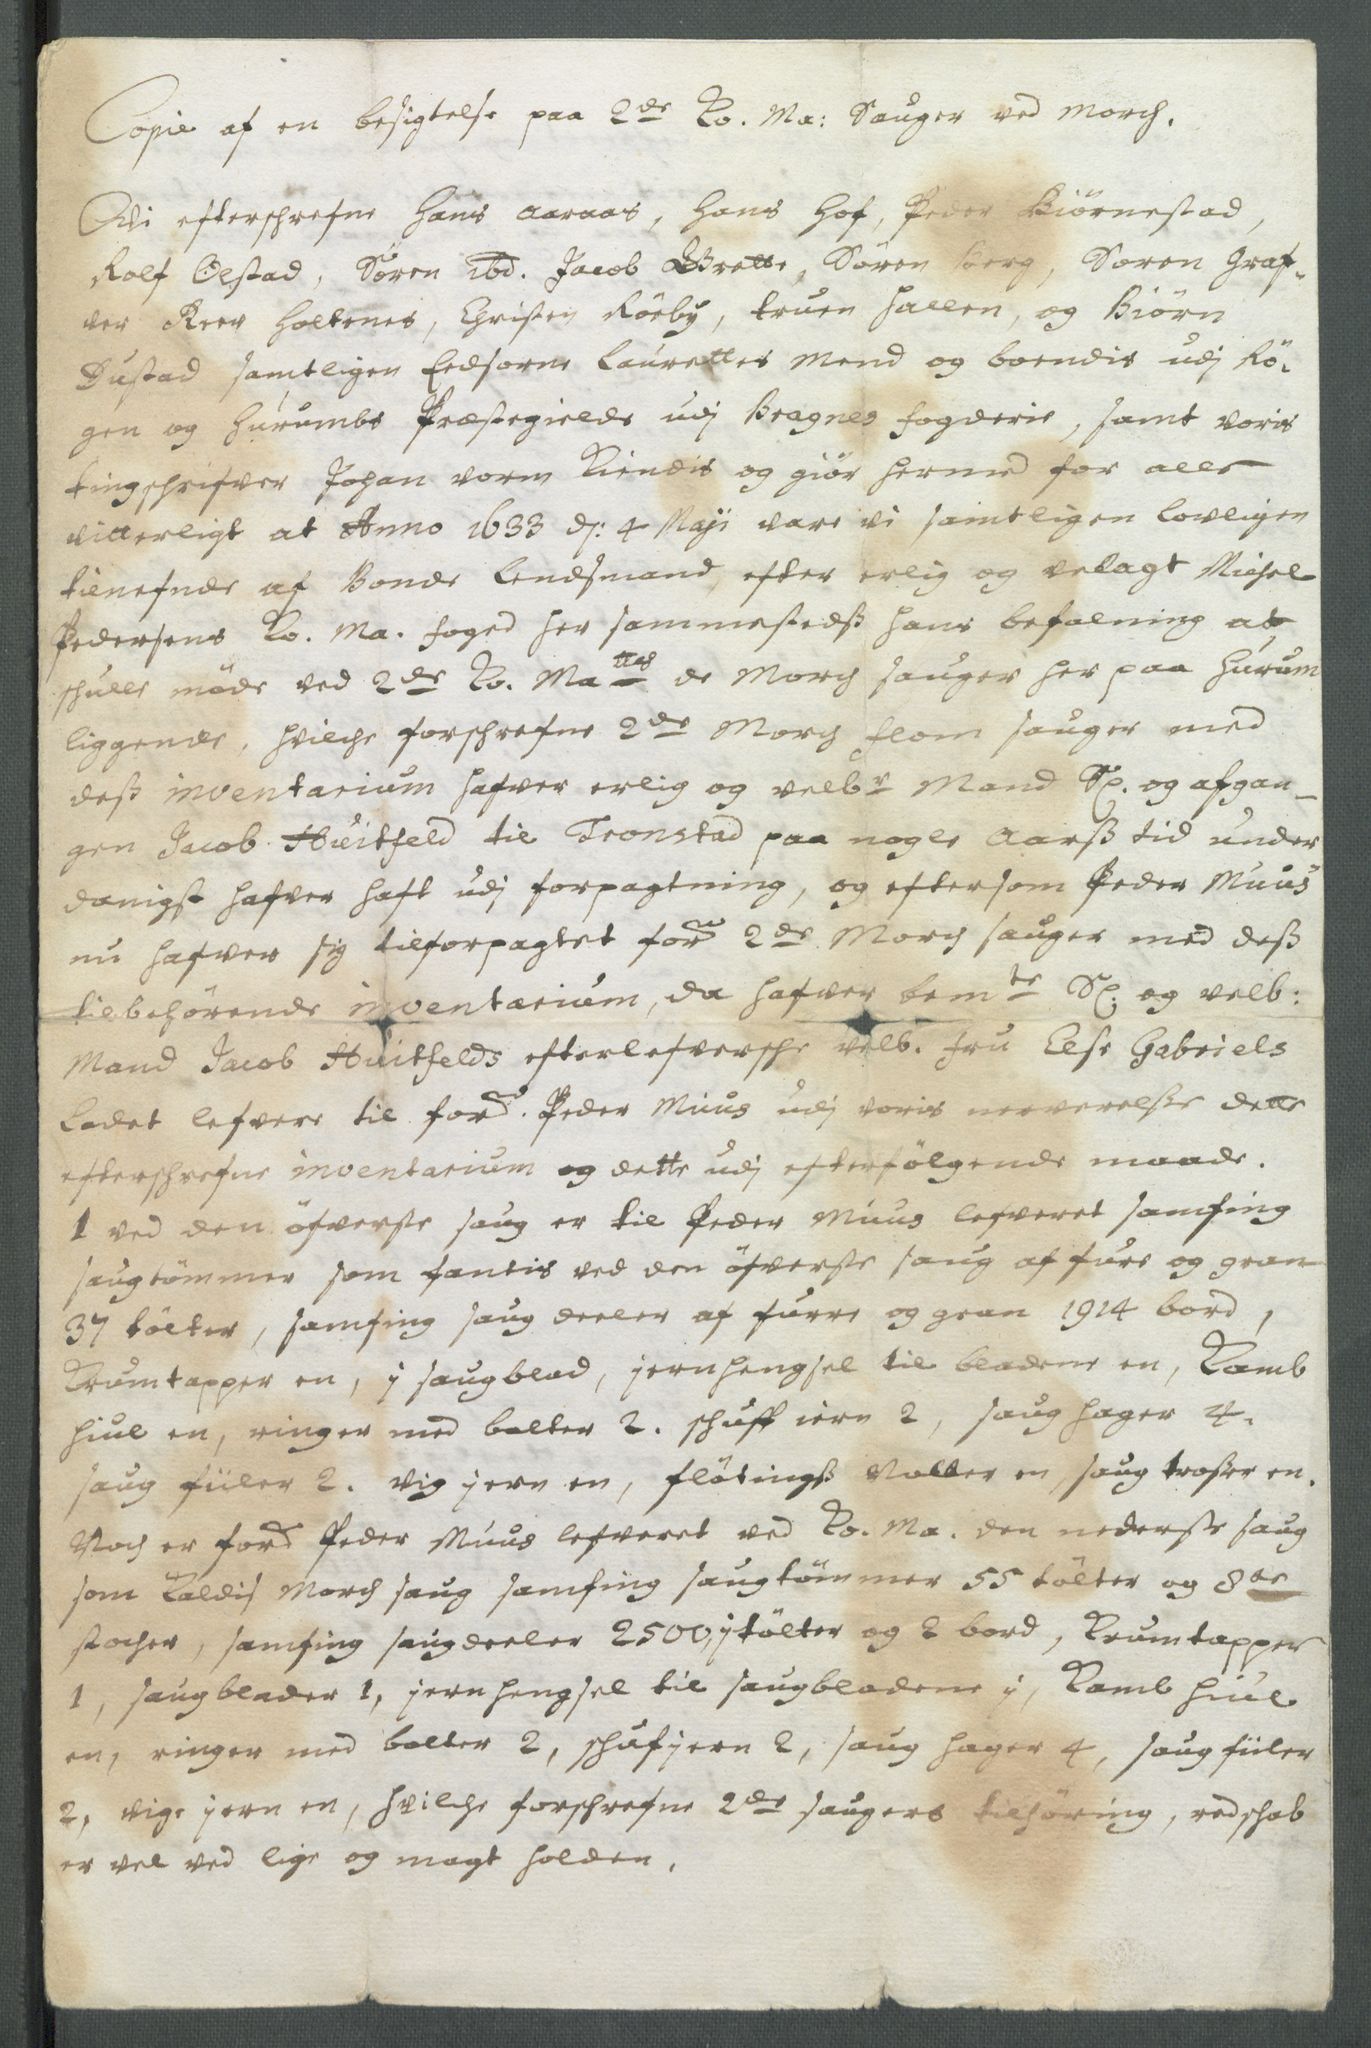 Copie af en besigtelse paa 2de Ko. Ma: Sauger ved Morch.
Wi efterschrefne Hans Aaraas, Hans Hof, Peder Biörnestad,
Rolf Ölstad, Sören ibd. Jacob Grette, Sören Berg, Soren Graf-
ver Reer Holtenes, Christen Röeby, Truen Hallen, og Biörn
Dustad samtligen Eedsorne Laurettes Mend og boendis udj Rö-
gen og Hurumbs Præstegields udj Bragnes fogderie, samt voris
tingschrifver Johan vorm Kiendis og giör hermed for alle
vitterligt at Anno 1633 d: 4 Maji vare vi samtligen lovligen
tilnefnde af Bonde Lendsmand, efter erlig og velagt Michel
Pedersens Ko. Ma. foged her sammestedß hans befalning at
schulle möde ved 2de Ko. Mattes de Morch sauger her paa Hurum
liggende, hvilche forschrefne 2de Morch flom sauger med
deß inventarium hafver erlig og velbr Mand Sl. og afgan-
gen Jacob Huitfeld til Tronstad paa nogle Aarß tid under
danigst hafver haft udj forpagtning, og eftersom Peder Muus
nu hafver sig tilforpagtet ford 2de Morch sauger med deß
tilbehörende inventarium, da hafver bemte Sl. og velb:
Mand Jacob Huitfelds efterlefversche velb. fru Else Gabriels
Ladet lefvere til ford. Peder Muus udj voris nerverelse dette
efterschrefne inventarium og dette udj efterfölgende maade.
1 ved den öfverste saug er til Peder Muus lefveret samfing
saugtömmer som fantis ved den öfverste saug af fure og gran
37 tölter, samfing saug deeler af furre og gran 1914 bord,
Krumtapper en, j saugblad, jernhengsel til bladene en, Kamb
hiul en, ringer med bolter 2. schuff iern 2, saug hager 4.
saug fiiler 2. vig jern en, flötingß Natter en, saug troßer en.
Noch er ford Peder Muus lefveret ved Ko. Ma. den nederste saug
som Kaldis Morch saug samfing saugtömmer 55 tölter og 8te
stocher, samfing saugdeeler 2500, j tölter og 2 bord, Krumtapper
1, saugblader 1, jernhengsel til saugbladene j, Kamb hiul
en, ringer med bolter 2, schufjern 2, saug hager 4, saug fiiler
2, vige jern en, hvilche forschrefne 2de saugers tilhöring, redschab
er vel ved lige og magt holden.